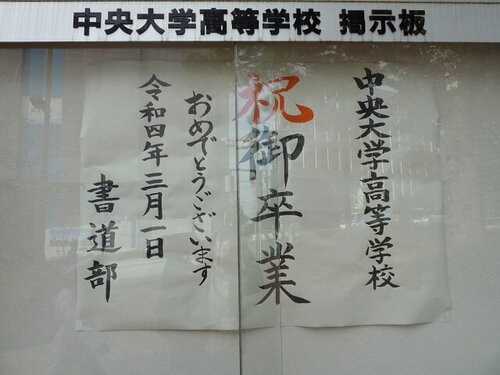 中央大学高等学校 掲示板
中央大学高等学校
祝御卒業
おめでとうございます
令和四年三月一日
書道部